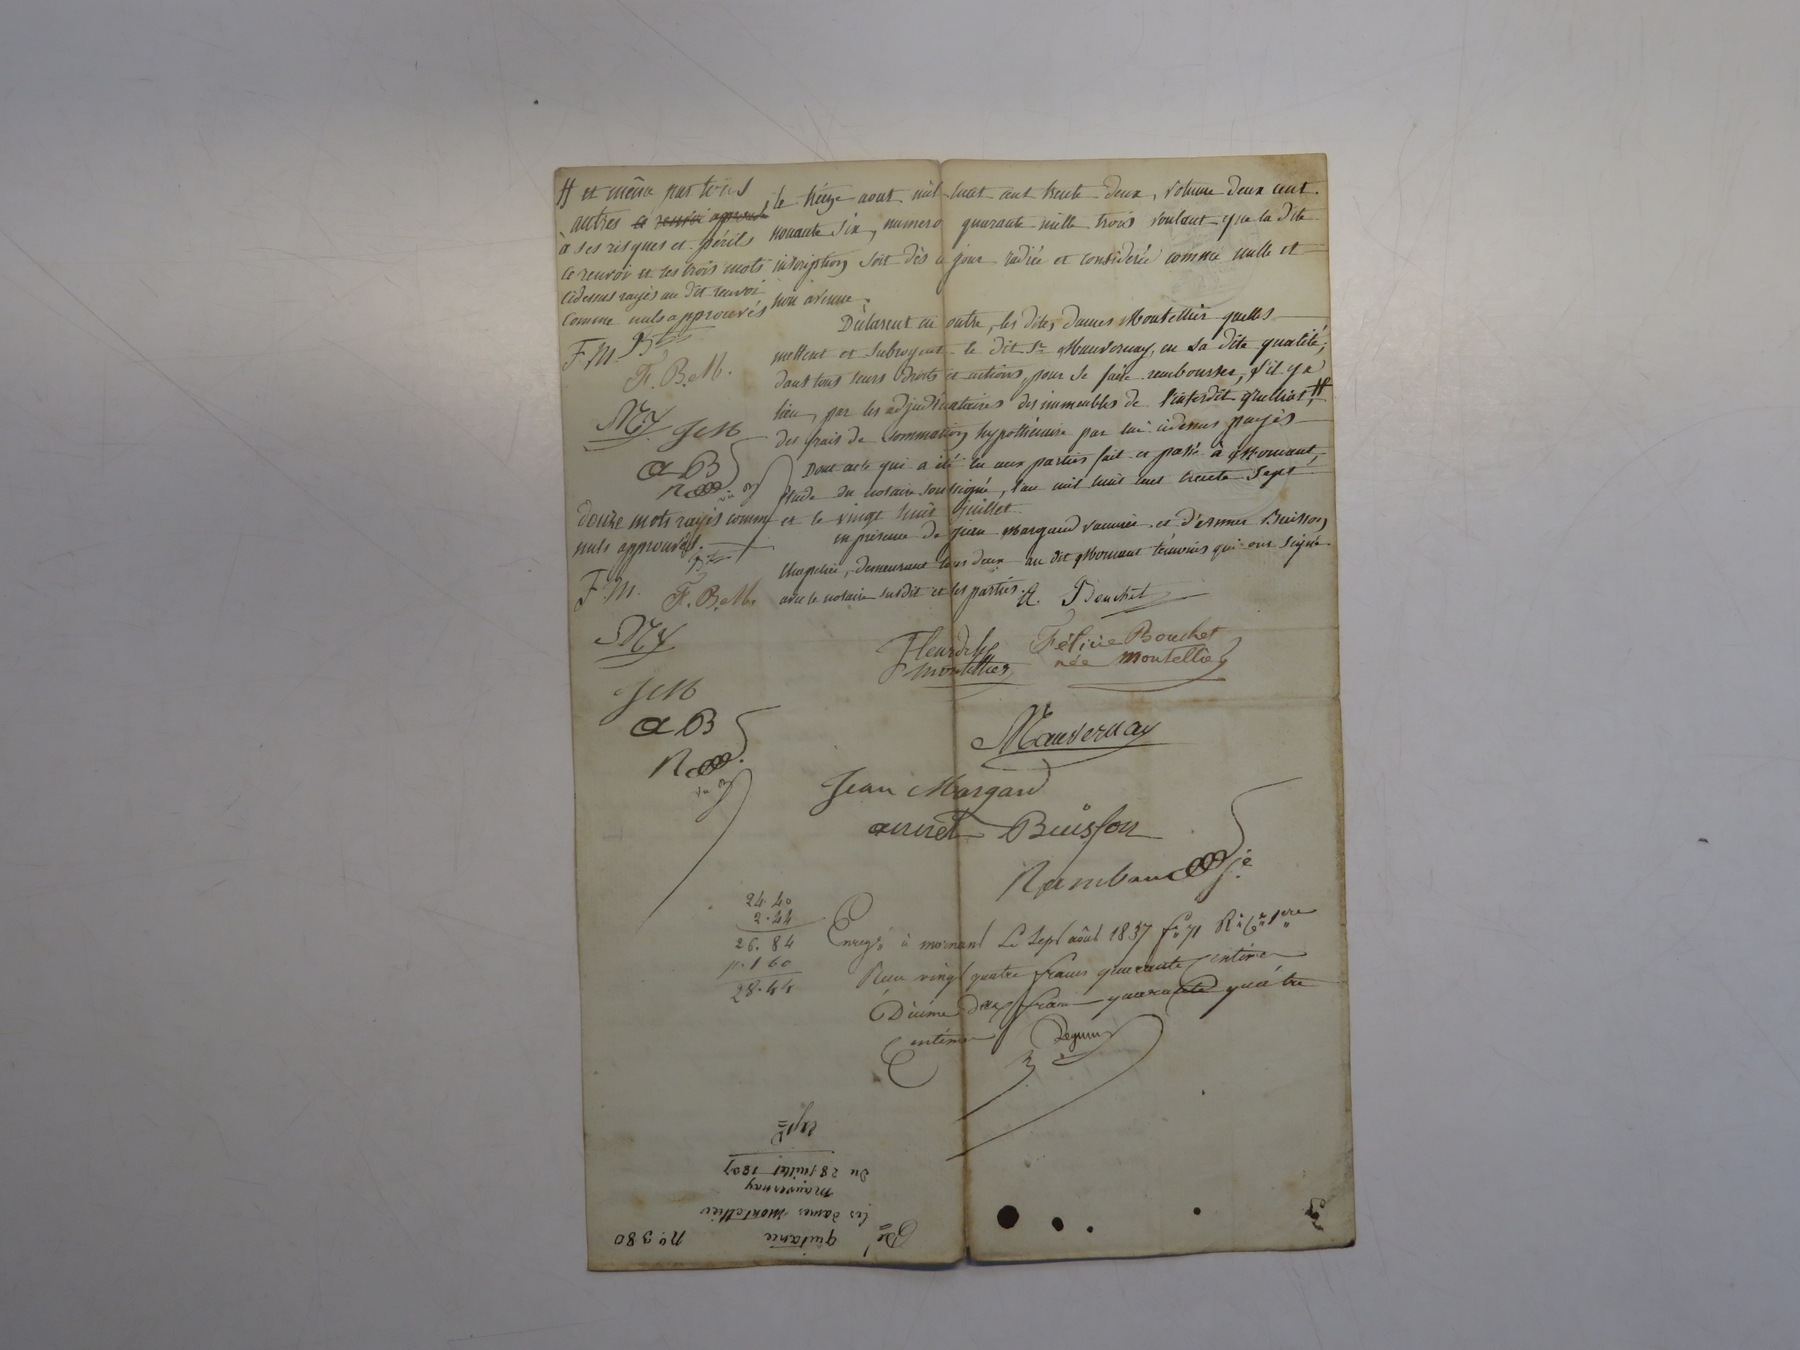 le treize aout mil huit cent trente deux, volume deux cent
nonante six, numero quarante mille trois voulant que la dite
inscription soit dès ce jour radiée et considerée comme nulle et
non avenue.
Déclarent en outre, les dites dames Montellier quelles
mettent et subrogent le dit Sr Mauvernay, en sa dite qualité,
dans tous leurs droits et actions pour se faire rembourser, s'il y a
lieu, par les adjudicataires des immeubles de l'interdit #
des frais de sommation hypothécaire par lui cidessus payés
Dont acte qui a été lu aux parties fait et passé à Mornant,
étude du notaire soussigné, l'an mil huit cent trente sept
et le vingt huit juillet
en présence de Jean Margand vannier et d'ennet Buisson
chapelier, demeurant tous deux au dit Mornant témoins qui ont signé
avec le notaire susdit et les parties.
# et même par tous
autres ce renvoi approuvé
à ses risques et périls
ce renvoi et les trois mots
cidessus rayés au dit renvoi
comme nuls approuvés
F. M. Bt
F. B. M.
My
JM
a B
R
douze mots rayés comme
nuls approuvés.
Bt
F. M. F. B. M.
My
JM
a B
R
Bouchet
Fleurdelys
Montellier
Félicie Bouchet
née Montellier
Mauvernay
Jean Margand
annet Buisson
Rambaud
24.40
2.44
26.84
1 60
28.44
Enregé à mornant Le Sept août 1837 fo 71
Reçu vingt quatre francs quarante centimes
Décime deux francs quarante quatre
Centimes
No. 380
Quitance
les dames Montellier
Mauvernay
Du 28 juillet 1837
Expon